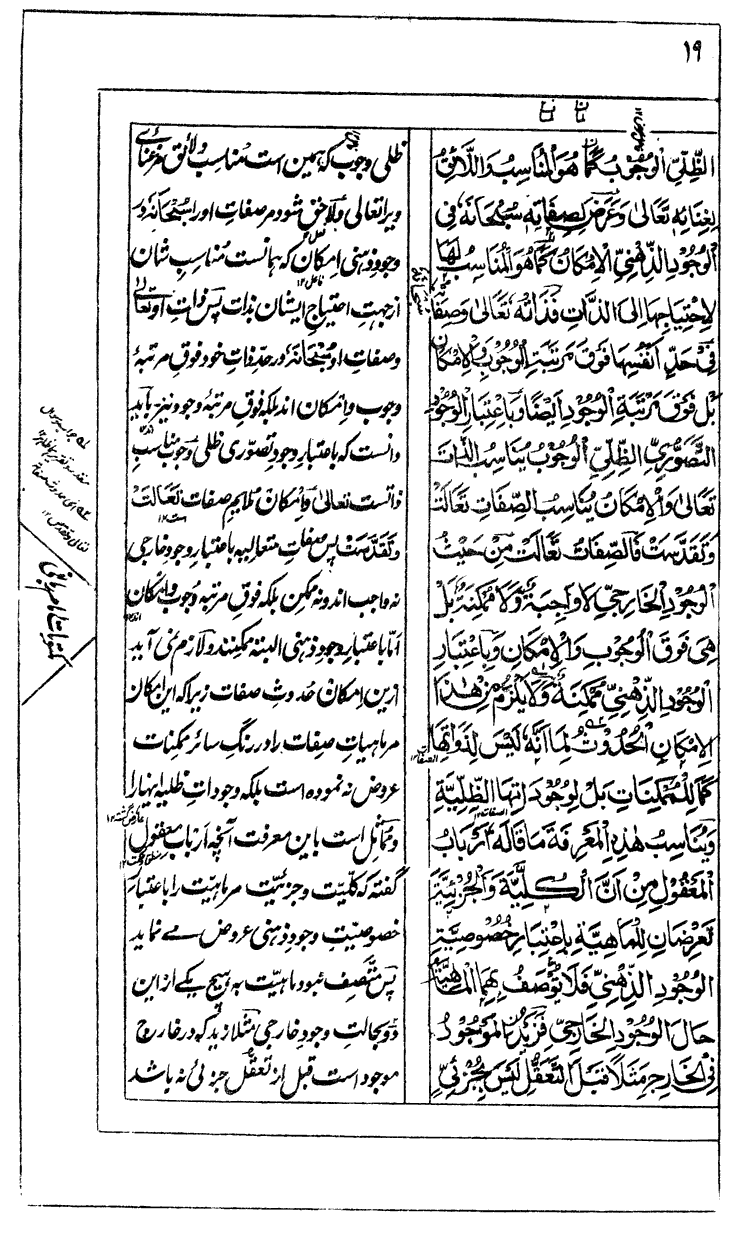 ١٩
الظِّلِّيِّ الْوُجُوبُ كَمَا هُوَ الْمُنَاسِبُ وَاللَّائِقُ
لِغِنَائِهِ تَعَالٰى وَعَرَضَ لِصِفَاتِهِ سُبْحَانَهُ فِى
الْوُجُودِ الذِّهْنِيِّ الْإِمْكَانُ كَمَا هُوَ الْمُنَاسِبُ لَهَا
لِاحْتِيَاجِهَا اِلَى الذَّاتِ فَذَاتُهُ تَعَالٰى وَصِفَاتُهُ
فِى حَدِّ اَنْفُسِهَا فَوْقَ مَرْتَبَةِ الْوُجُوبِ وَالْإِمْكَانِ
بَلْ فَوْقَ مَرْتَبَةِ الْوُجُودِ اَيْضًا وَبِاعْتِبَارِ الْوُجُودِ
التَّصَوُّرِيِّ الظِّلِّيِّ الْوُجُوبُ يُنَاسِبُ الذَّاتَ
تَعَالٰى وَالْإِمْكَانُ يُنَاسِبُ الصِّفَاتِ تَعَالَتْ
وَتَقَدَّسَتْ فَالصِّفَاتُ تَعَالَتْ مِنْ حَيْثُ
الْوُجُودِ الْخَارِجِيِّ لَا وَاجِبَةٌ وَلَا مُمْكِنَةٌ بَلْ
هِىَ فَوْقَ الْوُجُوبِ وَالْإِمْكَانِ وَبِاعْتِبَارِ
الْوُجُودِ الذِّهْنِيِّ مُمْكِنَةٌ وَلَا يَلْزَمُ مِنْ هٰذَا
الْإِمْكَانِ الْحُدُوثُ لِمَا اَنَّهُ لَيْسَ لِذَوَاتِهَا
كَمَا لِلْمُمْكِنَاتِ بَلْ لِوُجُودَاتِهَا الظِّلِّيَّةِ
وَيُنَاسِبُ هٰذِهِ الْمَعْرِفَةَ مَا قَالَهُ اَرْبَابُ
الْمَعْقُولِ مِنْ اَنَّ الْكُلِّيَّةَ وَالْجُزْئِيَّةَ
تَعْرِضَانِ لِلْمَاهِيَّةِ بِاعْتِبَارِ خُصُوصِيَّةِ
الْوُجُودِ الذِّهْنِيِّ فَلَا تُوصَفُ بِهِمَا الْمَاهِيَّةُ
حَالَ الْوُجُودِ الْخَارِجِيِّ فَزَيْدُنِ الْمَوْجُودُ
فِى الْخَارِجِ مَثَلًا قَبْلَ التَّعَقُّلِ لَيْسَ بِجُزْئِيٍّ
ظلی وجوب که همین است مُناسب ولائق مرغنائے
ویرا تعالی ولاحق شود مر صفاتِ اورا سُبحانهٗ در
وجودِ ذہنی اِمکان که ہمانست مُناسبِ شان
از جہتِ احتیاجِ ایشان بذات پس ذاتِ او تعالٰی
وصفاتِ او سُبحانهٗ در حدِّ ذاتِ خود فوقِ مرتبۂ
وجوب و اِمکان اند بلکه فوقِ مرتبۂ وجود نیز باید
دانست که باعتبارِ وجودِ تصوّری ظلی وجوب مناسبِ
ذاتست تعالٰی و اِمکان ملایمِ صفات تعالَتْ
وتقدّست پس صفاتِ متعالیه باعتبارِ وجودِ خارجی
نه واجب اند ونه ممکن بلکه فوقِ مرتبۂ وجوب و اِمکان
امّا باعتبارِ وجودِ ذہنی البتّه ممکنند و لازم نمی آید
ازین امکان حُدوثِ صفات زیرا که این امکان
مر ماہیاتِ صفات را در رنگِ سائر ممکنات
عروض نه نموده است بلکه وجوداتِ ظلیّۂ اینہارا
و مُماثل است باین معرفت آنچه اَربابِ معقول
گفته که کلّیت و جزئیّت مر ماہیّت را باعتبار
خصوصیّتِ وجودِ ذہنی عروض مے نماید
پس متّصف نبود ماہیّت به ہیچ یکے از این
دو بحالتِ وجودِ خارجی مثلاً زید که در خارج
موجود است قبل از تعقّل جزئی نه باشد
مکتوبات امام ربانی